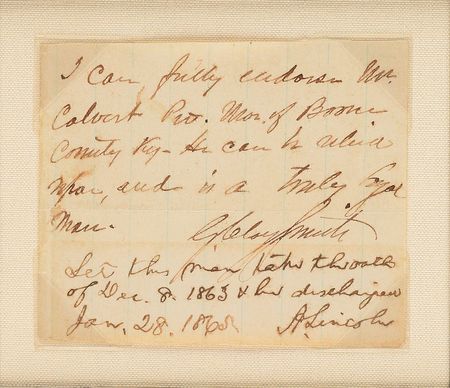 I can fully endorse Mr.
Calvert Pro. Mar. of Boone
County Ky - He can be relied
upon, and is a truly loyal
man.
G Clay Smith
Let this man take the oath
of Dec. 8. 1863 & be discharged
Jan. 28. 1865 A. Lincoln